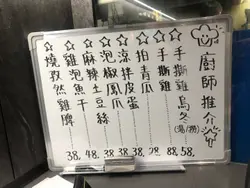 廚師推介
手撕雞烏冬(湯/撈)......58.
手撕雞......88.
拍青瓜......28.
涼拌皮蛋......38.
泡椒鳳爪......38.
麻辣土豆絲......38.
雞泡魚干......48.
燒孜然雞脾......38.